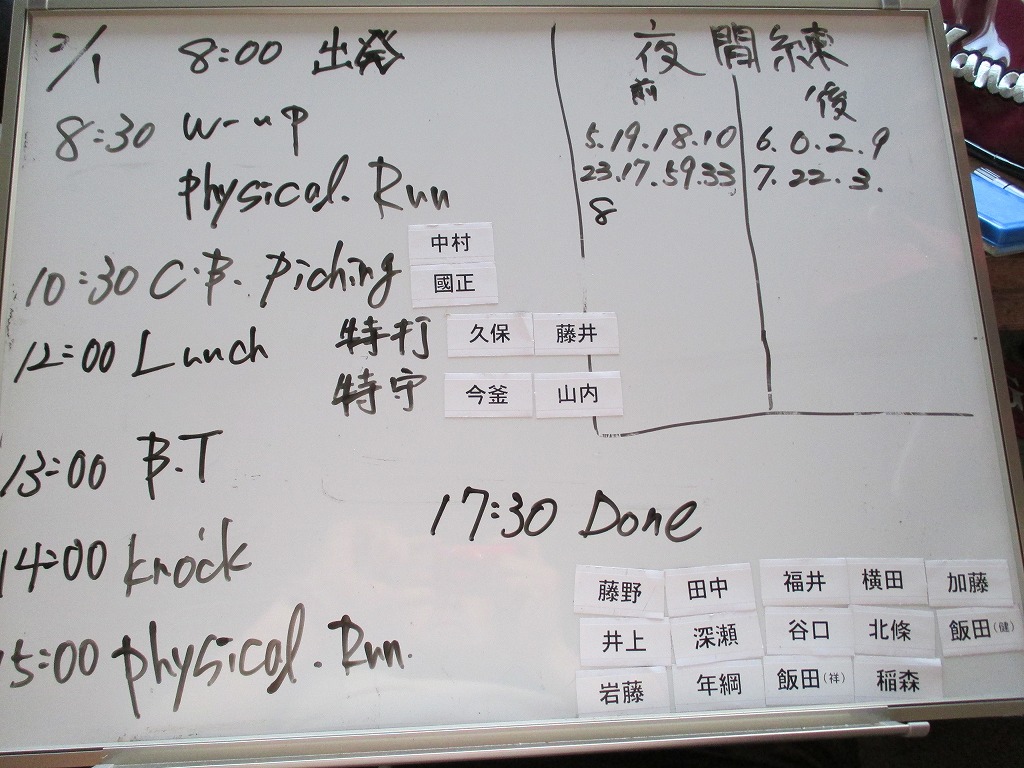 2/1 8:00 出発
8:30 W-up
Physical. Run
10:30 C.B. Piching 中村
國正
12:00 Lunch 特打 久保 藤井
特守 今釜 山内
13:00 B.T
14:00 knock
15:00 Physical. Run.
17:30 Done
夜間練
前
5.19.18.10
23.17.59.33
8
後
6.0.2.9
7.22.3.
藤野 田中 福井 横田 加藤
井上 深瀬 谷口 北條 飯田(健)
岩藤 年綱 飯田(祥) 稲森